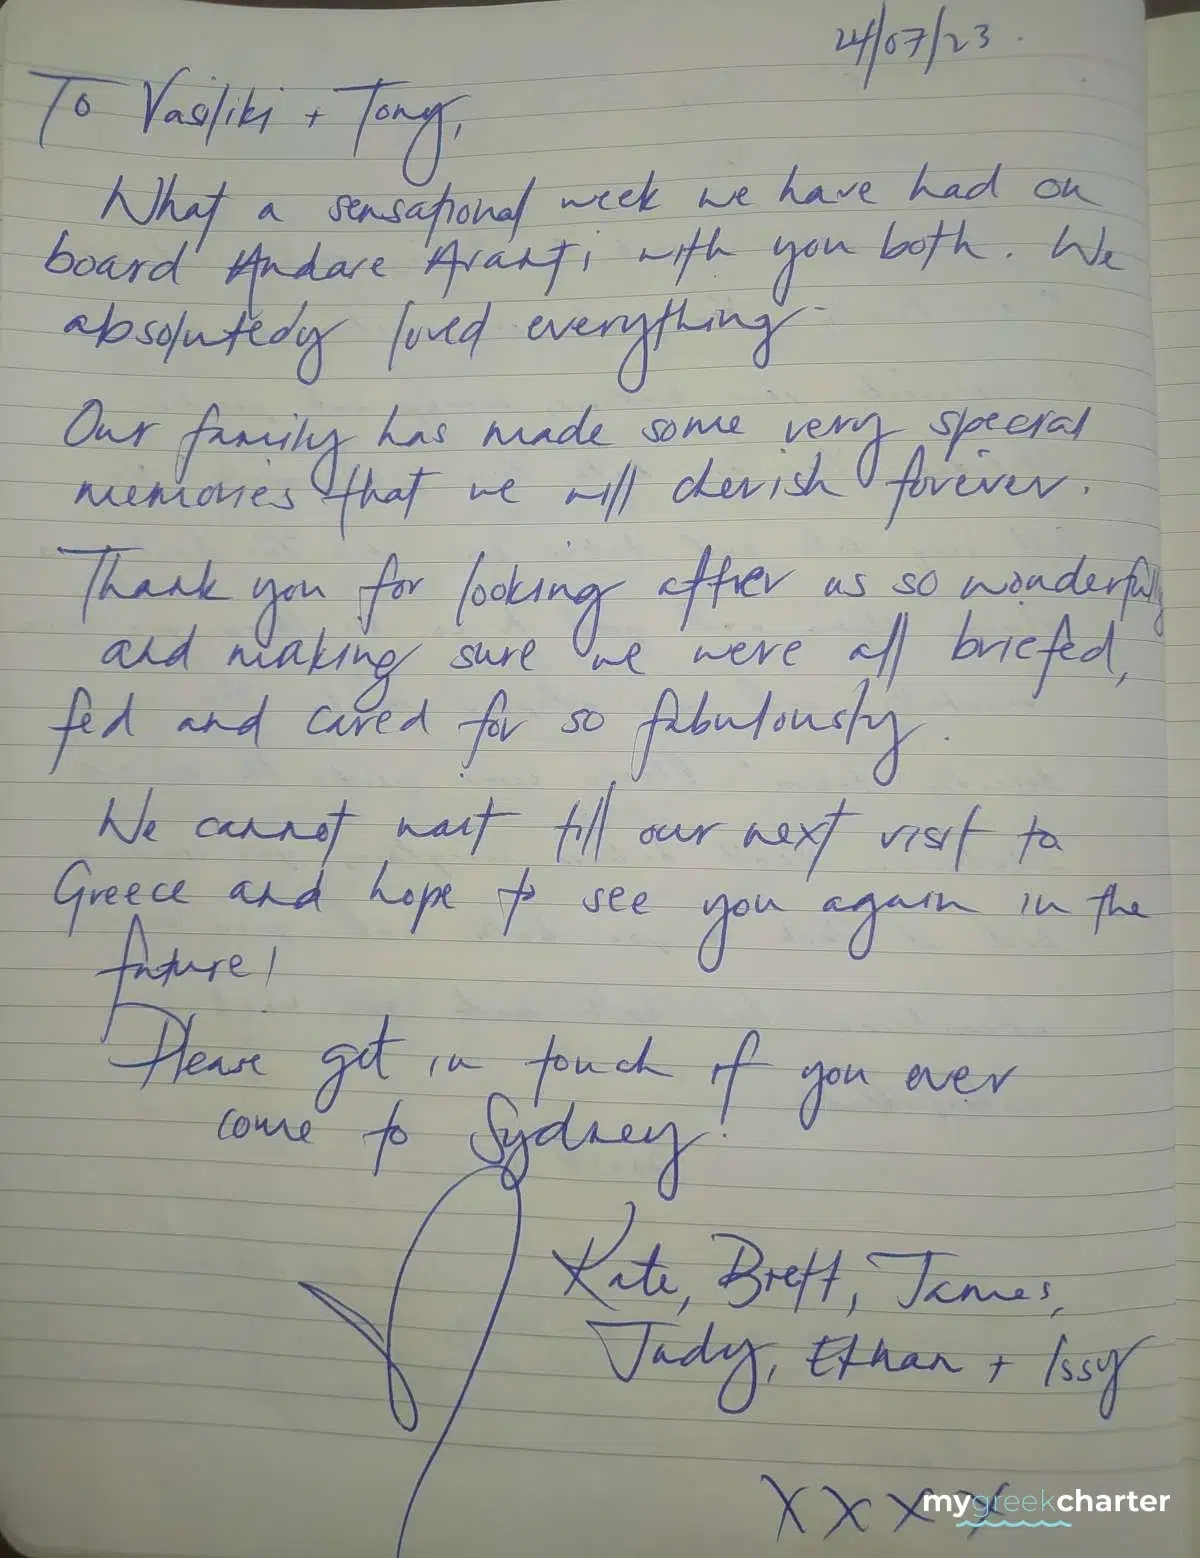 24/07/23.
To Vasiliki + Tony,
What a sensational week we have had on
board Andare Avanti with you both. We
absolutely loved everything.
Our family has made some very special
memories that we will cherish forever.
Thank you for looking after us so wonderfully
and making sure we were all briefed,
fed and cared for so fabulously.
We cannot wait till our next visit to
Greece and hope to see you again in the
future!
Please get in touch if you ever
come to Sydney!
Kate, Brett, James,
Judy, Ethan + Issy
XXXX
mygreekcharter